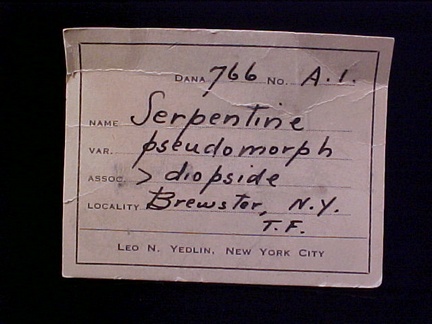 DANA 766 NO. A.1.
NAME Serpentine
VAR. pseudomorph
ASSOC. > diopside
LOCALITY Brewster, N.Y.
T.F.
LEO N. YEDLIN, NEW YORK CITY